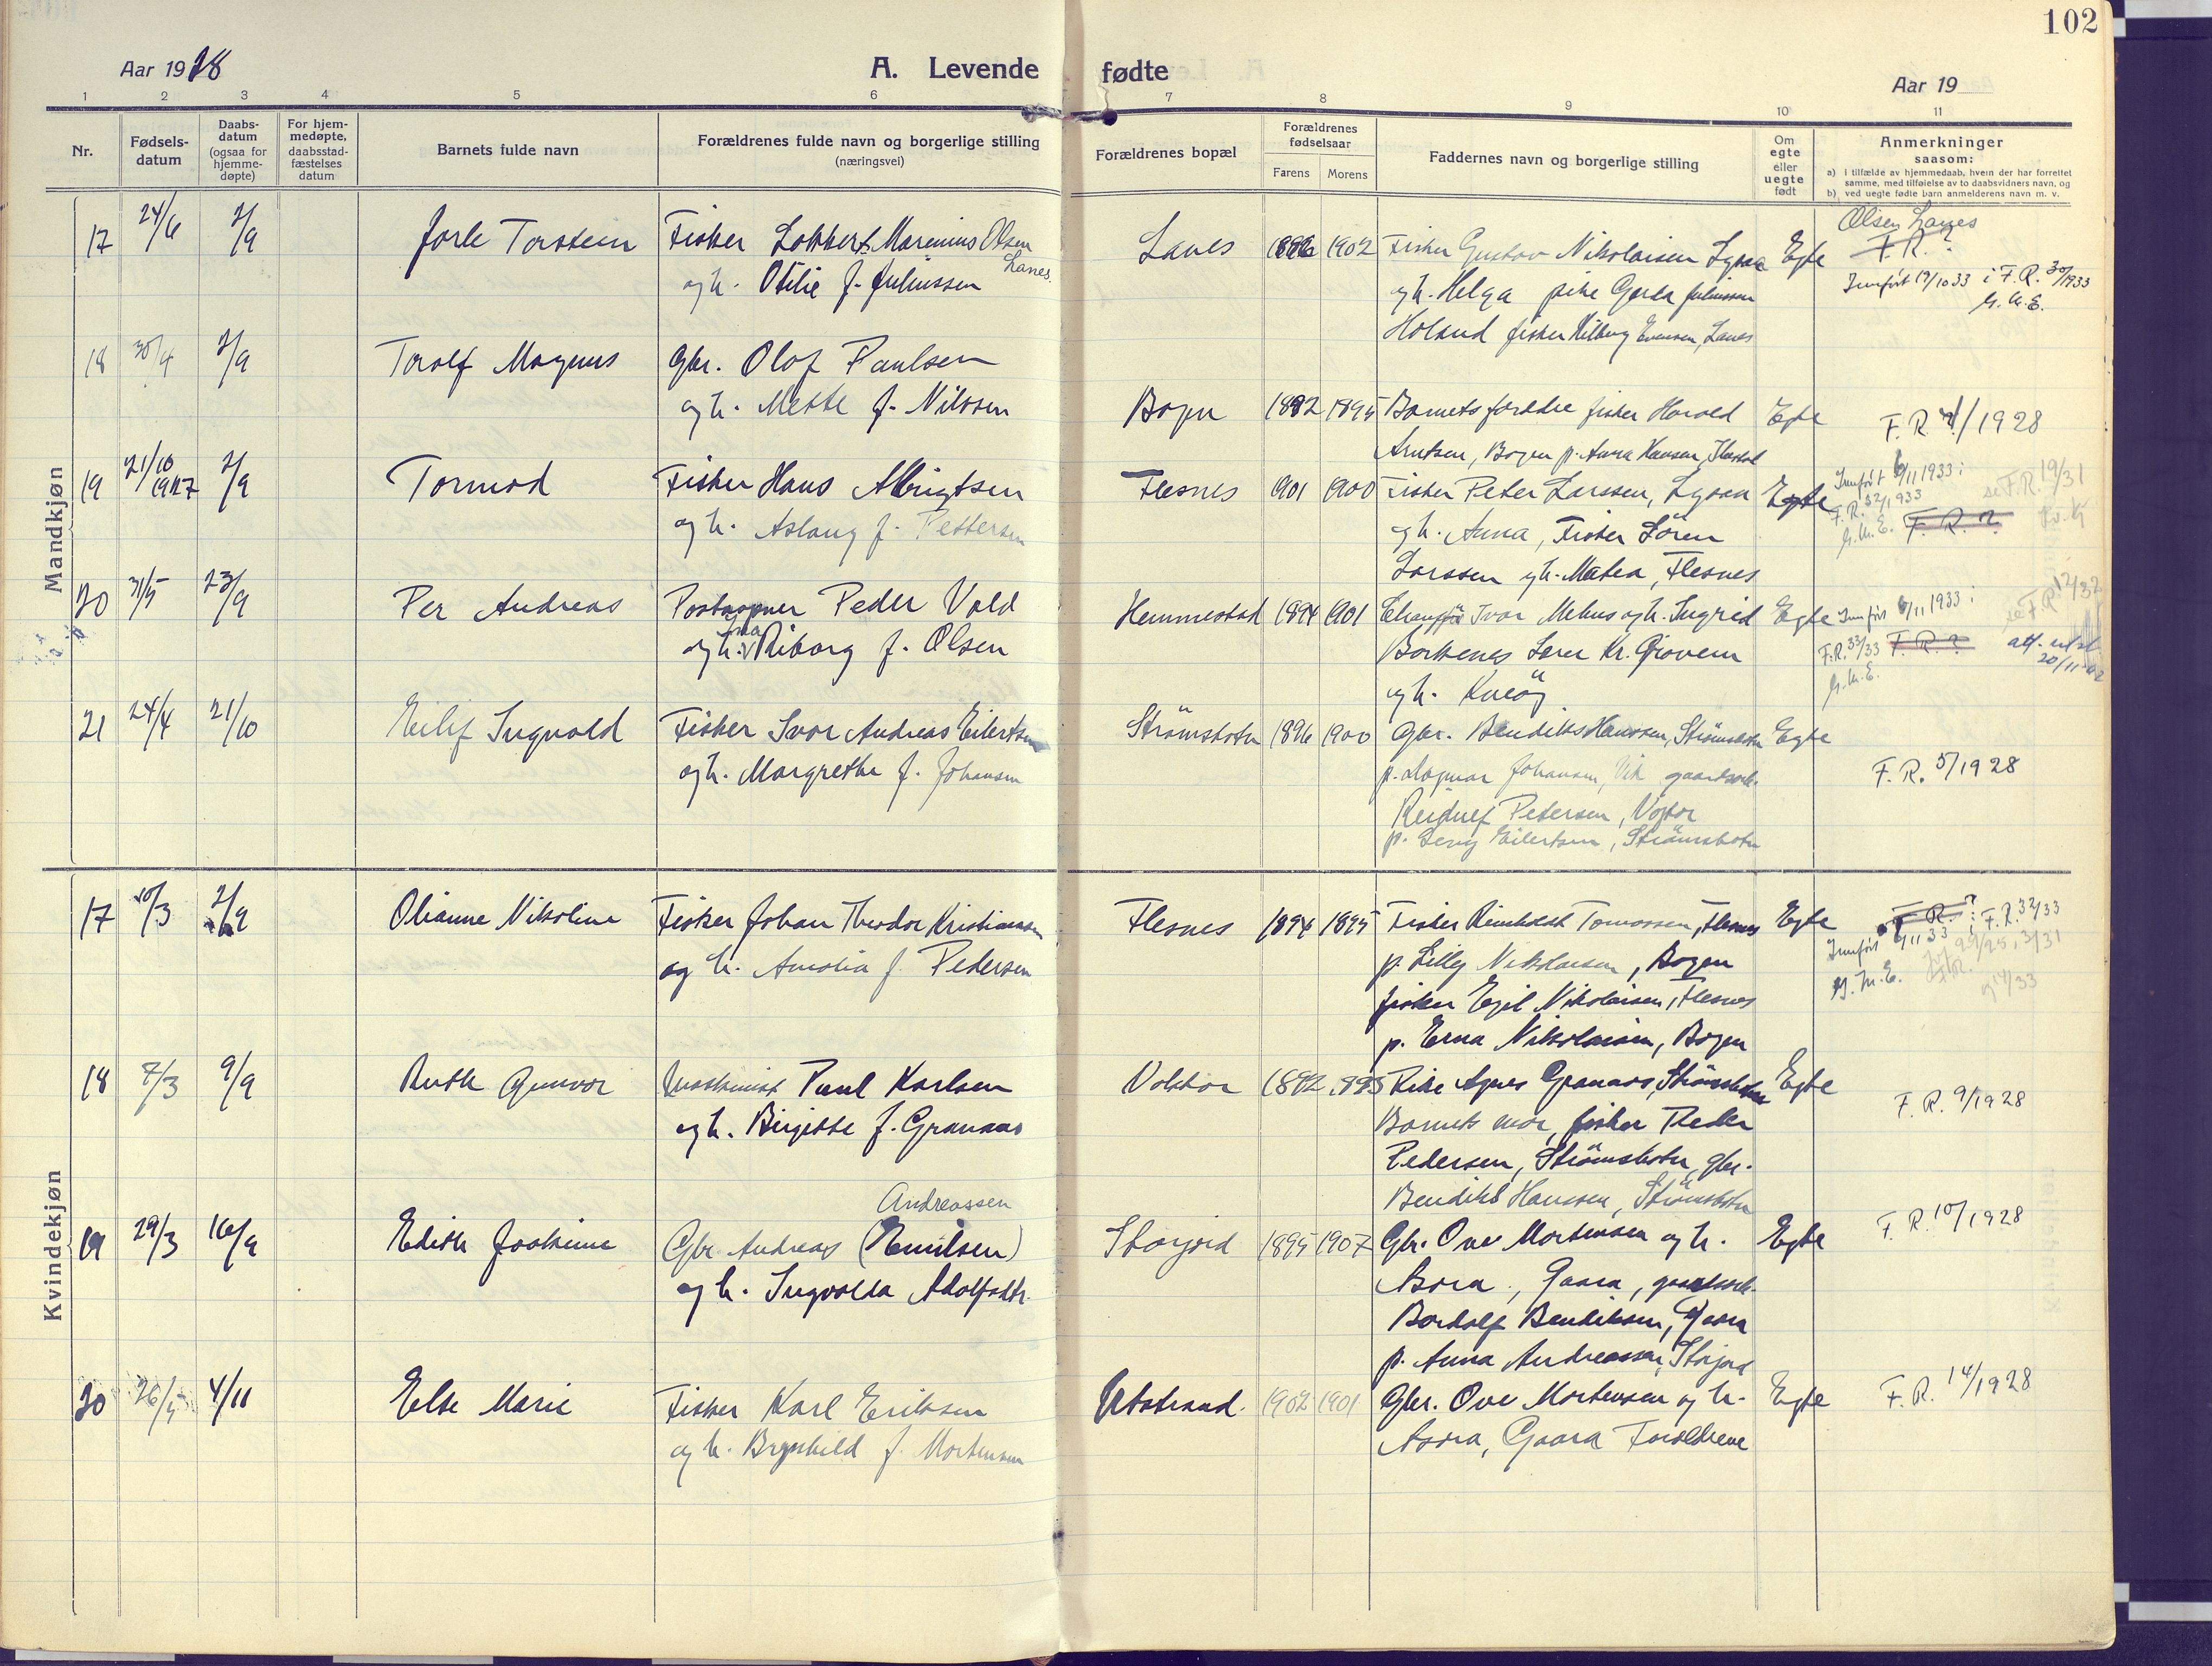 102
Aar 1928
A. Levende fødte
Aar 19
1 2 3 4 5 6 7 8 9 10 11
Nr.
Fødsels-
datum
Daabs-
datum
(ogsaa for
hjemme-
døpte)
For hjem-
medøpte,
daabsstad-
fæstelses
datum
Barnets fulde navn
Forældrenes fulde navn og borgerlige stilling
(næringsvei)
Forældrenes bopæl
Forældrenes
fødselsaar
Farens Morens
Faddernes navn og borgerlige stilling
Om
egte
eller
uegte
født
Anmerkninger
saasom:
a) i tilfælde av hjemmedaab, hvem der har forrettet
samme, med tilføielse av to daabsvidners navn, og
b) ved uegte fødte barn anmelderens navn m. v.
Mandkjøn
17 24/6 2/9 Jarle Torstein Fisker Marenius Olsen Lanes 1902 Fisker Gustav Nikolaisen Egte Olsen Lanes
Lanes.
og h. Otilie f. Juliussen og h. Helga pike Gerda Juliussen F. R. ?
Innført 19/10 33 i F. R. 30/1933
Holand fisker Evensen, Lanes G. M. E.
18 30/4 2/9 Torolf Magnus Gbr. Olaf Paulsen
og h. Mette f. Nilssen Bogen 1892 1895 Barnets foreldre fisker Harald Egte F. R. /1928
Arntsen, Bogen p. Anna Hansen,
19 21/10 1927 2/9 Tormod Fisker Hans Albrigtsen Flesnes 1901 1900 Fisker Peter Larssen, Egte Innført 6/11 1933 i se F. R. 19/31
F. R. 32/1933
og h. Aslaug f. Pettersen og h. Anna, Fisker Sören G. M. E. F. R. ?
Larssen og h. Matea, Flesnes
20 31/5 23/9 Per Andreas Postaapner Peder Vold Hemmestad 1894 1901 Ivar Mehus og h. Ingrid Egte Innført 6/11 1933 i se F R 12/32
og h. Riborg f. Olsen Borkenes Lærer Kr. F. R. 33/33 F. R. ? att. utst.
20/11
og h. G. M. E.
21 24/4 21/10 Eilif Ingvald Fisker Ivar Andreas Eilertsen Strömsbotn 1896 1900 Gbr. Bendiks Hanssen, Strömsbotn Egte
og h. Margrethe f. Johansen p. Dagmar Johansen, Vik F. R. 5/1928
Reidulf Petersen,
p. Eilertsen, Strömsbotn
Kvindekjøn
17 10/3 2/9 Olianne Nikoline Fisker Johan Theodor Kristiansen Flesnes 1894 1895 Fisker Reinholdt Tomassen, Flesnes Egte F. R. ? i F. R. 32/33
Innført 6/11 33
og h. Amalia f. Pedersen p. Lilly Nikolaisen, Bogen 29/25, 3/31
fisker Egil Nikolaisen, Flesnes G. M. E. F. R. 14/33
p. Erna Nikolaisen, Bogen
18 7/3 9/9 Ruth Gunvor Maskinist Paul Karlsen 1892 1895 Pike Agnes Granaas, Strömsbotn Egte F. R. 9/1928
og h. Birgitte f. Granaas Barnets mor, fisker Peder
Pedersen, Strömsbotn, gbr.
Bendiks Hanssen, Strömsbotn
Andreassen
19 29/3 16/9 Edith Joakime Gbr. Andreas (Emilsen) Storjord 1895 1907 Gbr. Ove Mortensen og h. Egte F. R. 10/1928
og h. Ingvalda Adolfsdtr. Asora, Gaara,
Bordolf Bendiksen, Gaara
p. Anna Andreassen, Storjord
20 26/5 4/11 Else Marie Fisker Karl Eriksen Utstrand. 1902 1901 Gbr. Ove Mortensen og h. Egte F. R. 14/1928
og h. Brynhild f. Mortensen Asora, Gaara Foreldrene